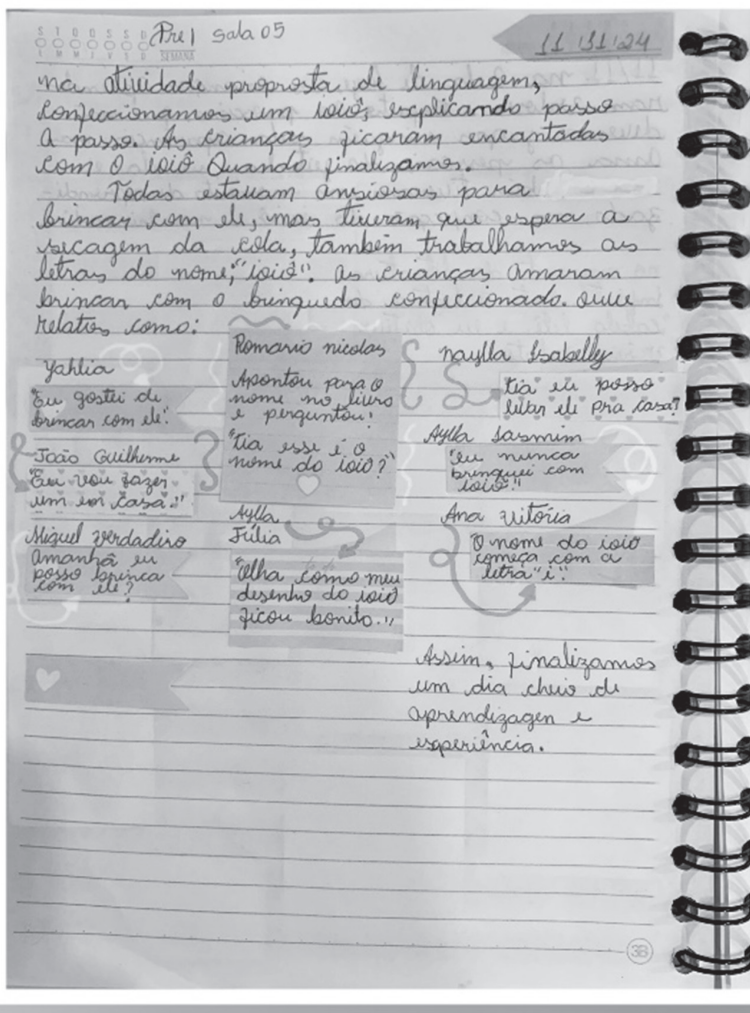 S T Q Q S S D
SEMANA
Pre I sala 05
11 11 24
na atividade proposta de linguagem,
confeccionamos um ioiô, explicando passo
a passo. As crianças ficaram encantadas
com o ioiô Quando finalizamos.
Todas estavam ansiosas para
brincar com ele, mas tiveram que espera a
secagem da cola, também trabalhamos as
letras do nome, "ioiô". as crianças amaram
brincar com o brinquedo confeccionado. ouve
relatos como:
Yahlia
"Eu gostei de
brincar com ele!
João Guilherme
"Eu vou fazer
um em casa."
Miguel verdadiro
amanhã eu
posso brinca
com ele?
Romario nicolas
Apontou para o
nome no livro
e perguntou!
"tia esse é o
nome do ioiô?"
Aylla
Júlia
"olha como meu
desenho do ioiô
ficou bonito."
naylla Isabelly
tia eu posso
levar ele pra casa?
Aylla Iasmim
"eu nunca
brinquei com
ioiô"
Ana Vitória
O nome do ioiô
começa com a
letra "i".
Assim, finalizamos
um dia cheio de
aprendizagen e
experiência.
38